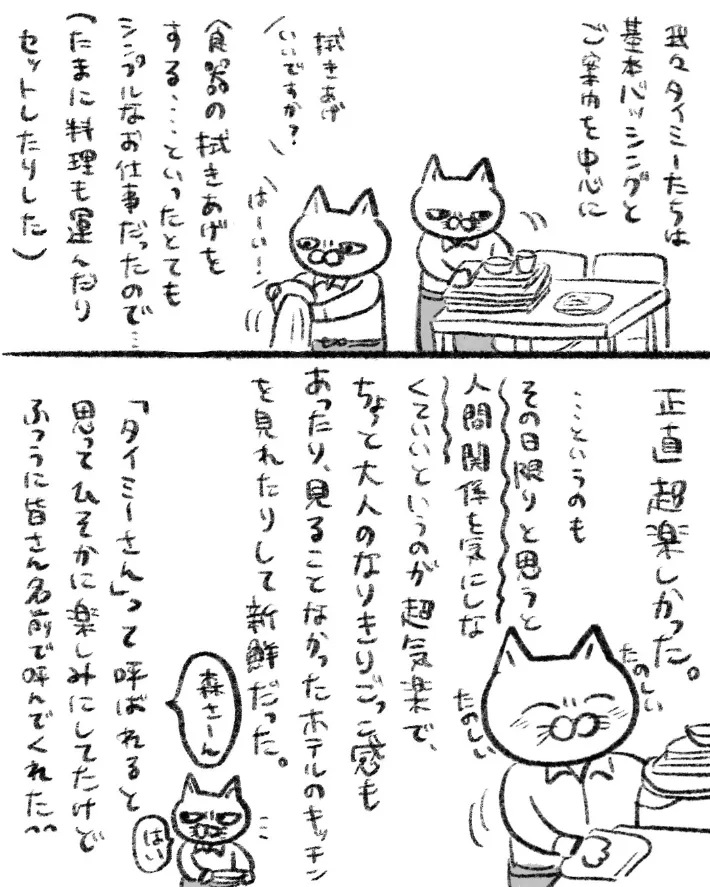 我々タイミーたちは
基本バッシングと
ご案内を中心に
拭きあげ
いいですか?
はーい!
食器の拭きあげを
する、…といったとても
シンプルなお仕事だったので…
(たまに料理も運んだり
セットしたりした)
正直超楽しかった。
…というのも
その日限りと思うと
人間関係を気にしな
くていいというのが超気楽で、
ちょっと大人のなりきりごっこ感も
あったり、見ることなかったホテルのキッチン
を見れたりして新鮮だった。
たのしい
たのしい
「タイミーさん」って呼ばれると
思ってひそかに楽しみにしてたけど
ふつうに皆さん名前で呼んでくれた^^
森さーん
はい